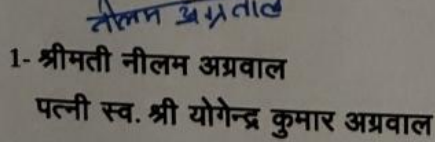 नीलम अग्रवाल
1- श्रीमती नीलम अग्रवाल
पत्नी स्व. श्री योगेन्द्र कुमार अग्रवाल